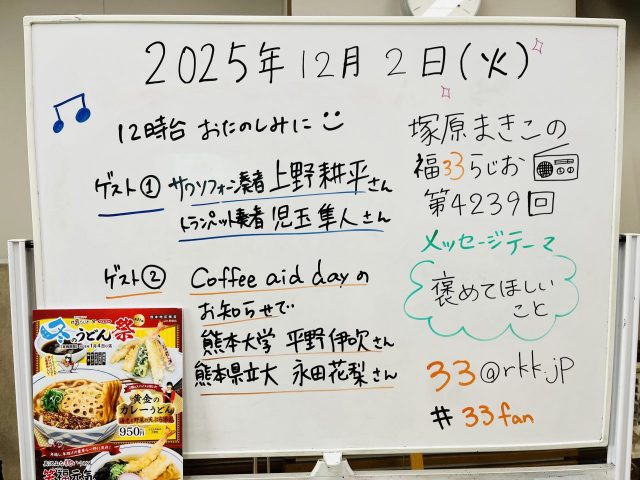 2025年12月2日(火)
12時台 おたのしみに
ゲスト① サクソフォーン奏者 上野耕平さん
トランペット奏者 児玉隼人さん
ゲスト② Coffee aid dayの
お知らせで
熊本大学 平野伊吹さん
熊本県立大 永田花梨さん
塚原まきこの
福33らじお
第4239回
メッセージテーマ
褒めてほしい
こと
33@rkk.jp
#33fan
冬のうどん祭
黄金の
カレーうどん
950円